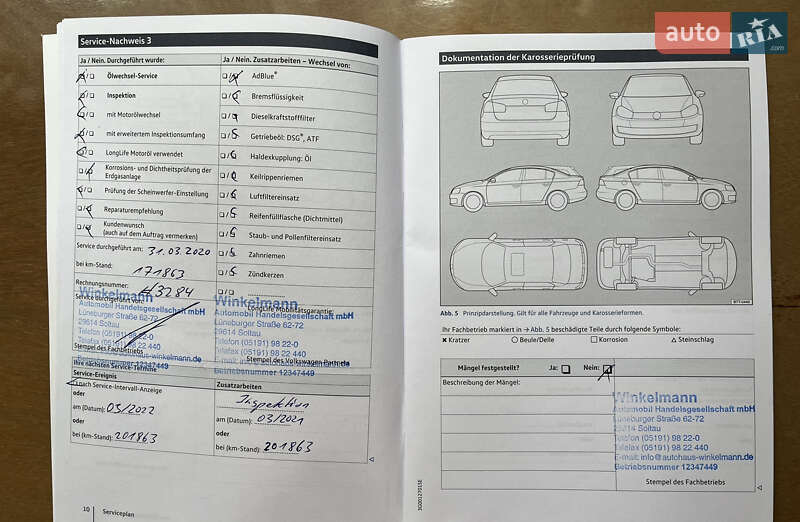 Service-Nachweis 3
Ja / Nein. Durchgeführt wurde:
Ölwechsel-Service
Inspektion
mit Motorölwechsel
mit erweitertem Inspektionsumfang
LongLife Motoröl verwendet
Korrosions- und Dichtheitsprüfung der
Erdgasanlage
Prüfung der Scheinwerfer-Einstellung
Reparaturempfehlung
Kundenwunsch
(auch auf dem Auftrag vermerken)
Service durchgeführt am: 31.03.2020
bei km-Stand: 171863
Rechnungsnummer: 43284
Service durchgeführt von:
Winkelmann
Automobil Handelsgesellschaft mbH
Lüneburger Straße 62-72
29614 Soltau
Telefon (05191) 98 22-0
Telefax (05191) 98 22 440
Stempel des Fachbetriebs
Ja / Nein. Zusatzarbeiten – Wechsel von:
AdBlue®
Bremsflüssigkeit
Dieselkraftstofffilter
Getriebeöl: DSG®, ATF
Haldexkupplung: Öl
Keilrippenriemen
Luftfiltereinsatz
Reifenfüllflasche (Dichtmittel)
Staub- und Pollenfiltereinsatz
Zahnriemen
Zündkerzen
LongLife Mobilitätsgarantie:
Winkelmann
Automobil Handelsgesellschaft mbH
Lüneburger Straße 62-72
29614 Soltau
Telefon (05191) 98 22-0
Telefax (05191) 98 22 440
Stempel des Volkswagen Partners
Betriebsnummer 12347449
Ihre nächsten Service-Termine
Service-Ereignis
nach Service-Intervall-Anzeige
oder
am (Datum): 03/2022
oder
bei (km-Stand): 201863
Zusatzarbeiten
Inspektion
am (Datum): 03/2021
oder
bei (km-Stand): 201863
10 Serviceplan
Dokumentation der Karosserieprüfung
Abb. 5 Prinzipdarstellung. Gilt für alle Fahrzeuge und Karosserieformen.
Ihr Fachbetrieb markiert in → Abb. 5 beschädigte Teile durch folgende Symbole:
Kratzer
Beule/Delle
Korrosion
Steinschlag
Mängel festgestellt? Ja: Nein:
Beschreibung der Mängel:
Winkelmann
Automobil Handelsgesellschaft mbH
Lüneburger Straße 62-72
29614 Soltau
Telefon (05191) 98 22-0
Telefax (05191) 98 22 440
E-mail: info@autohaus-winkelmann.de
Betriebsnummer 12347449
Stempel des Fachbetriebs
auto RIA .com